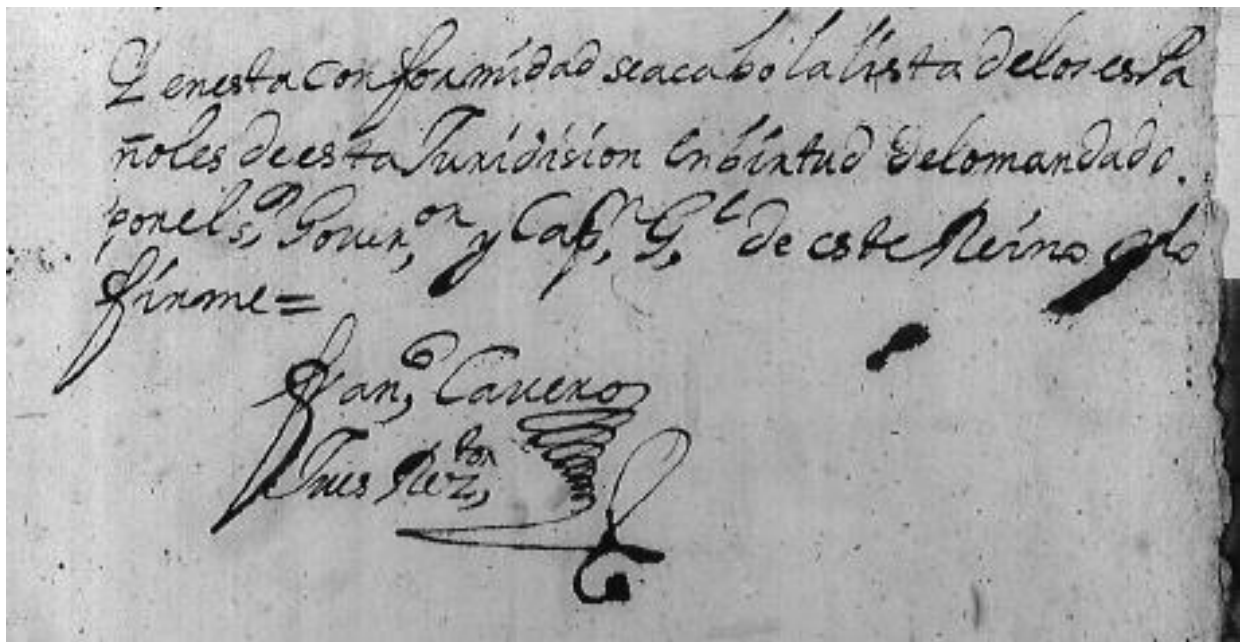 Y en esta conformidad se acabo la lista de los espa
ñoles de esta Juridision en birtud de lo mandado
por el s.r Gouer.or y Cap.n G.l de este Reino y lo
firme =
Fran.co Cauero
Jues Re.tor